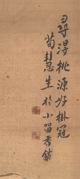 尋得桃源好掛冠
荀慧生於小留香館